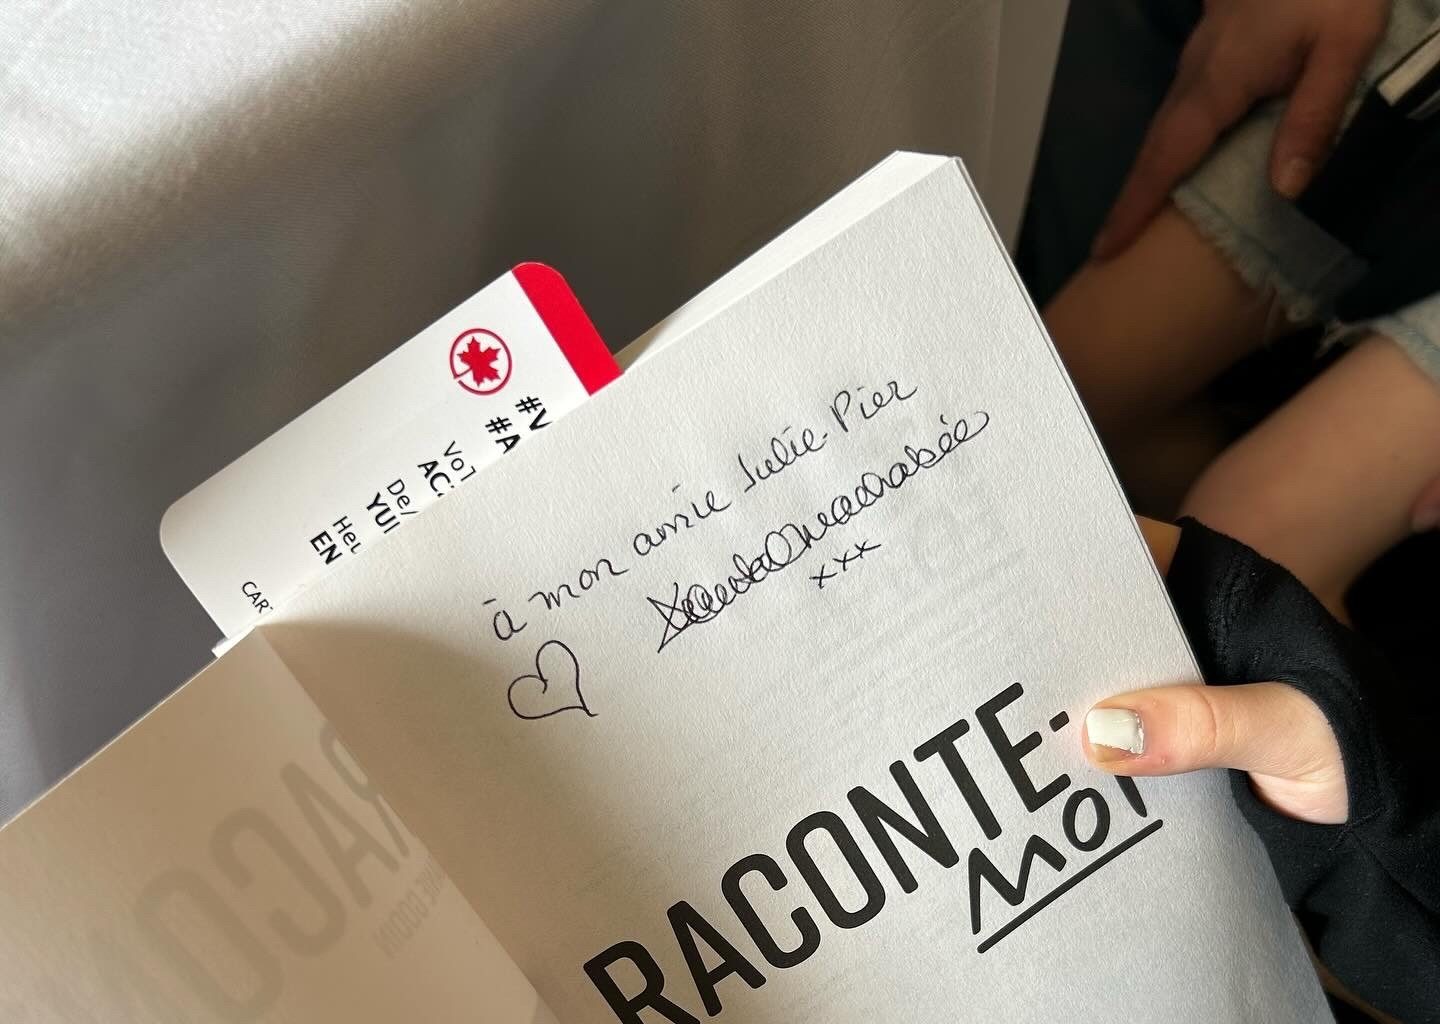 #V
#A
Vo
AC
De/
YUL
Heu
EN
CAR
à mon amie Julie-Pier
xxx
RACONTE-
MOI
RACO
IE GODIN